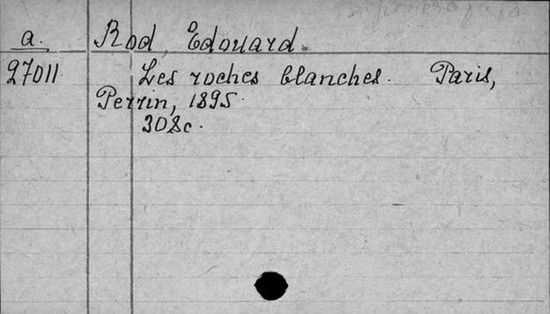 a. Rod, Edouard.
27011 Les roches blanches. Paris,
Perrin, 1895.
308c.